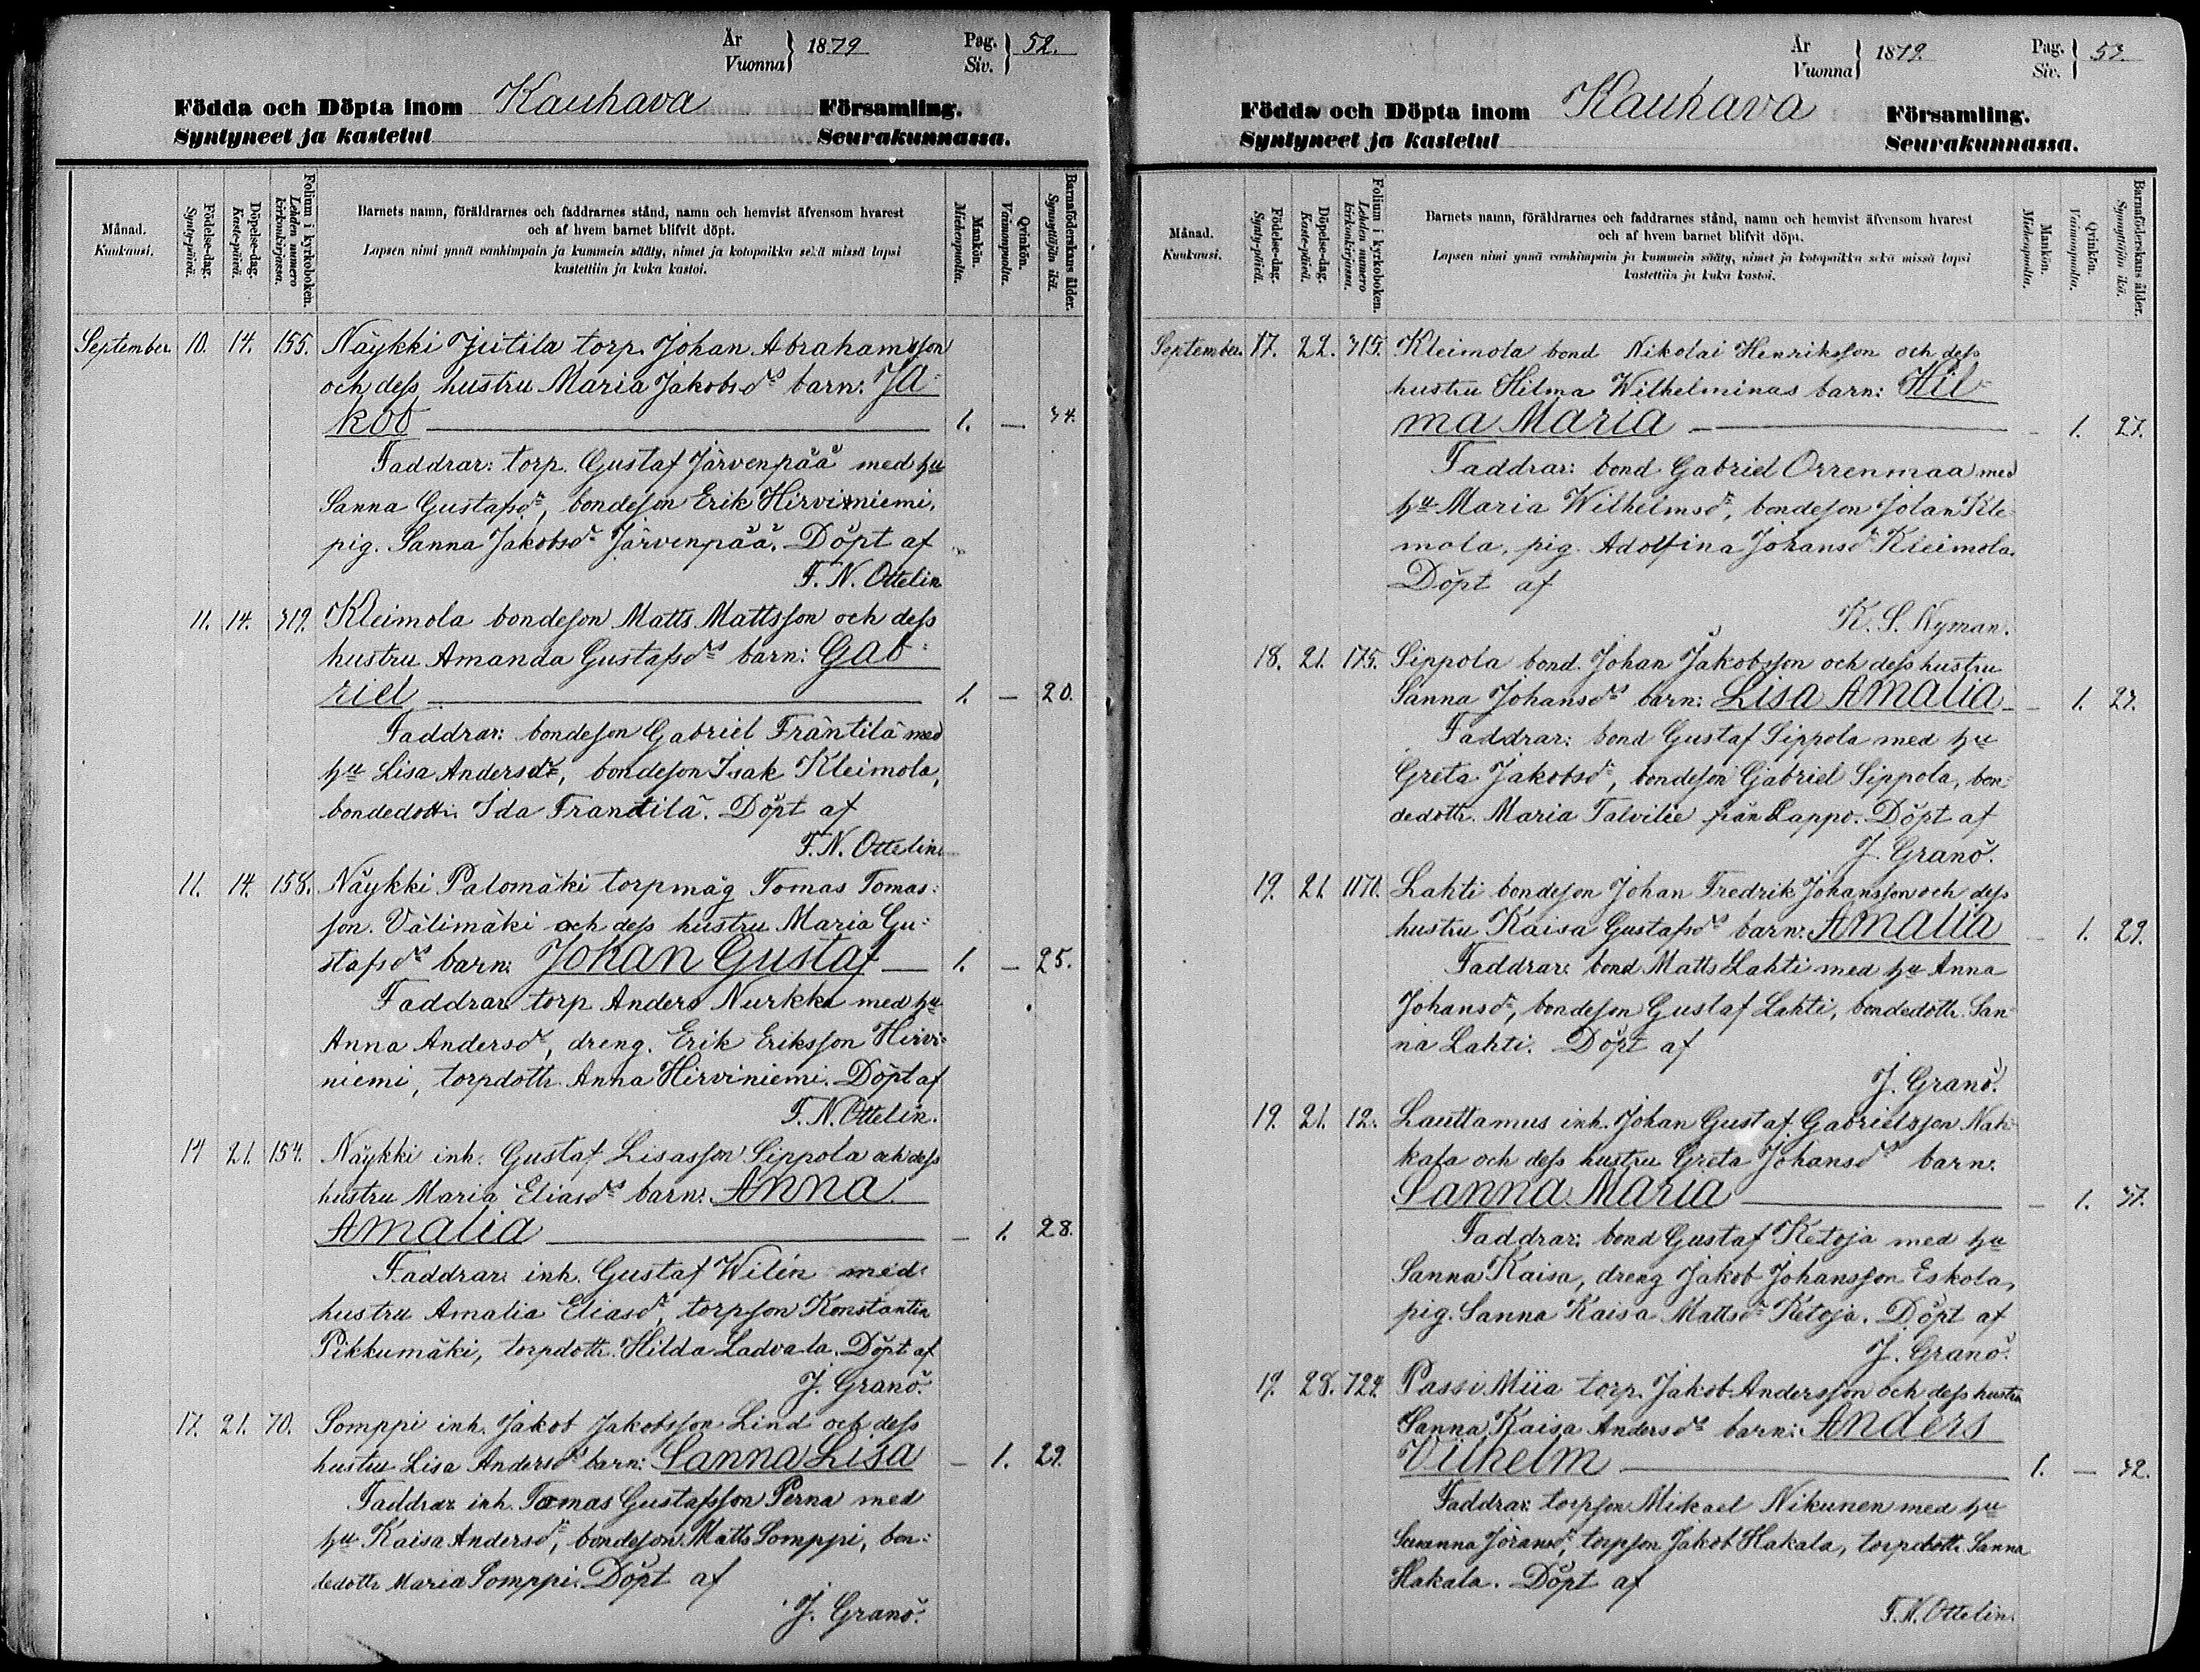 År
Vuonna } 1879
Pag.
Siv. } 52.
Födda och Döpta inom Kauhava Församling.
Syntyneet ja kastetut Seurakunnassa.
Månad.
Kuukausi.
Födelse-dag.
Synty-päivä.
Döpelse-dag.
Kaste-päivä.
Folium i kyrkoboken.
Lehden numero
kirkonkirjassa.
Barnets namn, föräldrarnes och faddrarnes stånd, namn och hemvist äfvensom hvarest
och af hvem barnet blifvit döpt.
Lapsen nimi ynnä vanhimpain ja kummein sääty, nimet ja kotopaikka sekä missä lapsi
kastettiin ja kuka kastoi.
Mankön.
Miehenpuolta.
Qvinkön.
Vaimonpuolta.
Barnaföderskans ålder.
Synnyttäjän ikä.
September 10. 14. 155. Näykki Jutila torp. Johan Abrahamsson
och dess hustru Maria Jakobsdrs barn: Ja=
kob — 1. — 34.
Faddrar: torp. Gustaf Järvenpää med hu
Sanna Gustafsdr, bondeson Erik Hirviniemi,
pig. Sanna Jakobsdr Järvenpää. Döpt af
F. N. Ottelin
11. 14. 319. Kleimola bondeson Matts Mattsson och dess
hustru Amanda Gustafsdrs barn: Gab=
riel — 1. — 20.
Faddrar: bondeson Gabriel Fräntilä med
hu Lisa Andersdr, bondeson Isak Kleimola,
bondedottr. Ida Frantilä. Döpt af
F. N. Ottelin
11. 14. 158. Näykki Palomäki torpmåg Tomas Tomas=
son Välimäki och dess hustru Maria Gu=
stafsdrs barn: Johan Gustaf — 1. — 25.
Faddrar torp Anders Nurkka med hu
Anna Andersdr, dreng. Erik Eriksson Hirvi=
niemi, torpdottr. Anna Hirviniemi. Döpt af
F. N. Ottelin.
14 21. 154. Näykki inh. Gustaf Lisasson Sippola och dess
hustru Maria Eliasdrs barn: Anna
Amalia — — 1. 28.
Faddrar: inh. Gustaf Wilén med
hustru Amalia Eliasdr, torpson Konstantin
Pikkumäki, torpdottr. Hilda Ladvala. Döpt af
J. Granö.
17. 21. 70. Somppi inh. Jakob Jakobsson Lind och dess
hustru Lisa Andersdrs barn: Sanna Lisa — 1. 29.
Faddrar inh. Tomas Gustafsson Perna med
hu Kaisa Andersdr, bondeson Matts Somppi, bon=
dedottr Maria Somppi. Döpt af
J. Granö.
År
Vuonna } 1879.
Pag.
Siv. } 53.
Födda och Döpta inom Kauhava Församling.
Syntyneet ja kastetut Seurakunnassa.
Månad.
Kuukausi.
Födelse-dag.
Synty-päivä.
Döpelse-dag.
Kaste-päivä.
Folium i kyrkoboken.
Lehden numero
kirkonkirjassa.
Barnets namn, föräldrarnes och faddrarnes stånd, namn och hemvist äfvensom hvarest
och af hvem barnet blifvit döpt.
Lapsen nimi ynnä vanhimpain ja kummein sääty, nimet ja kotopaikka sekä missä lapsi
kastettiin ja kuka kastoi.
Mankön.
Miehenpuolta.
Qvinkön.
Vaimonpuolta.
Barnaföderskans ålder.
Synnyttäjän ikä.
September. 17. 22. 315. Kleimola bond Nikolai Henriksson och dess
hustru Hilma Wilhelminas barn: Hil=
ma Maria — — 1. 27.
Faddrar: bond Gabriel Orrenmaa med
hu Maria Wilhelmsdr, bondeson Johan Klei
mola, pig. Adolfina Johansdr Kleimola.
Döpt af
K. S. Nyman.
18. 21. 175. Sippola bond. Johan Jakobsson och dess hustru
Sanna Johansdrs barn: Lisa Amalia — 1. 27.
Faddrar: bond Gustaf Sippola med hu
Greta Jakobsdr, bondeson Gabriel Sippola, bon=
dedottr. Maria Talvitie från Lappo. Döpt af
J. Granö.
19. 21. 1171. Lahti bondeson Johan Fredrik Johansson och dess
hustru Kaisa Gustafsdrs barn: Amalia — 1. 29.
Faddrar: bond Matts Lahti med hu Anna
Johansdr, bondeson Gustaf Lahti, bondedottr. San=
na Lahti. Döpt af
J. Granö.
19. 21. 12. Lauttamus inh. Johan Gustaf Gabrielsson Nah=
kala och dess hustru Greta Johansdrs barn:
Sanna Maria — — 1. 37.
Faddrar: bond Gustaf Ketoja med hu
Sanna Kaisa, dreng Jakob Johansson Eskola,
pig. Sanna Kaisa Mattsdr Ketoja. Döpt af
J. Granö.
19. 28. 724. Passi Miia torp. Jakob Andersson och dess hustru
Sanna Kaisa Andersdrs barn: Anders
Vilhelm — 1. — 32.
Faddrar: torpson Mickael Nikunen med hu
Susanna Jöransdr, torpson Jakob Hakala, torpdottr. Sanna
Hakala. Döpt af
F. N. Ottelin.